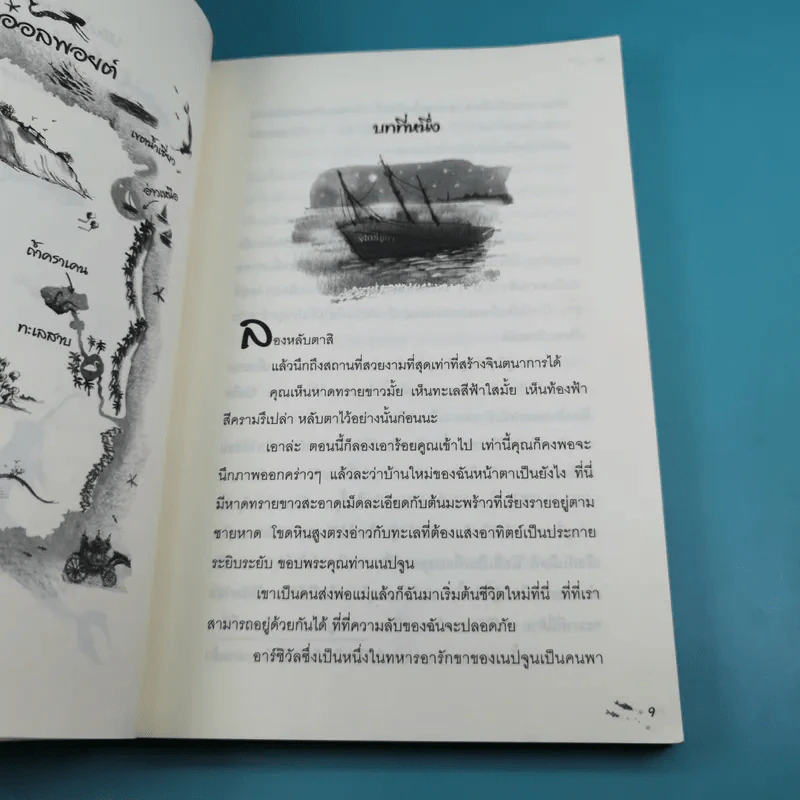 ออลพอยต์
เขตน้ำเชี่ยว
อ่าวเหนือ
ถ้ำคราเคน
ทะเลสาบ
บทที่หนึ่ง
ลองหลับตาสิ
แล้วนึกถึงสถานที่สวยงามที่สุดเท่าที่สร้างจินตนาการได้
คุณเห็นหาดทรายขาวมั้ย เห็นทะเลสีฟ้าใสมั้ย เห็นท้องฟ้า
สีครามรึเปล่า หลับตาไว้อย่างนั้นก่อนนะ
เอาล่ะ ตอนนี้ก็ลองเอาร้อยคูณเข้าไป เท่านี้คุณก็คงพอจะ
นึกภาพออกคร่าวๆ แล้วละว่าบ้านใหม่ของฉันหน้าตาเป็นยังไง ที่นี่
มีหาดทรายขาวสะอาดเม็ดละเอียดกับต้นมะพร้าวที่เรียงรายอยู่ตาม
ชายหาด โขดหินสูงตรงอ่าวกับทะเลที่ต้องแสงอาทิตย์เป็นประกาย
ระยิบระยับ ขอบพระคุณท่านเนปจูน
เขาเป็นคนส่งพ่อแม่แล้วก็ฉันมาเริ่มต้นชีวิตใหม่ที่นี่ ที่ที่เรา
สามารถอยู่ด้วยกันได้ ที่ที่ความลับของฉันจะปลอดภัย
อาร์ชิวัลซึ่งเป็นหนึ่งในทหารอารักขาของเนปจูนเป็นคนพา
9